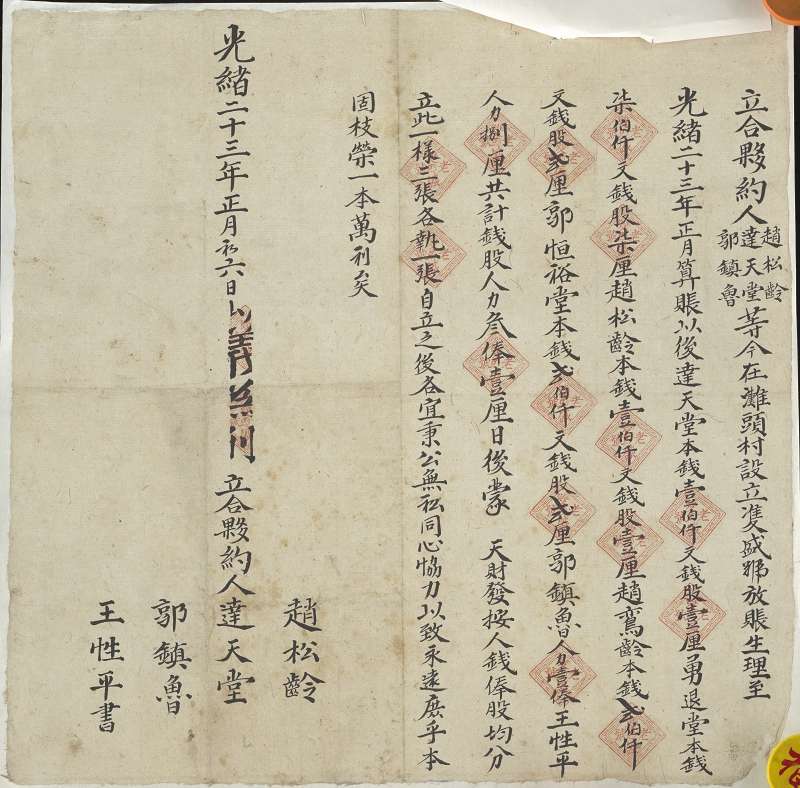 立合夥約人趙松齡達天堂郭鎮魯等今在灘頭村設立雙盛號放賬生理至
光緒二十三年正月算賬以後達天堂本錢壹伯仟文錢股壹厘勇退堂本錢
柒伯仟文錢股柒厘趙松齡本錢壹伯仟文錢股壹厘趙鸞齡本錢弍伯仟
文錢股弍厘郭恒裕堂本錢弍伯仟文錢股弍厘郭鎮魯人力壹俸王性平
人力捌厘共計錢股人力叁俸壹厘日後蒙 天財發按人錢俸股均分
立此一樣三張各執一張自立之後各宜秉公無私同心恊力以致永遠庶乎本
固枝榮一本萬利矣
光緒二十三年正月初六日 立合夥約人達天堂
趙松齡
郭鎮魯
王性平書